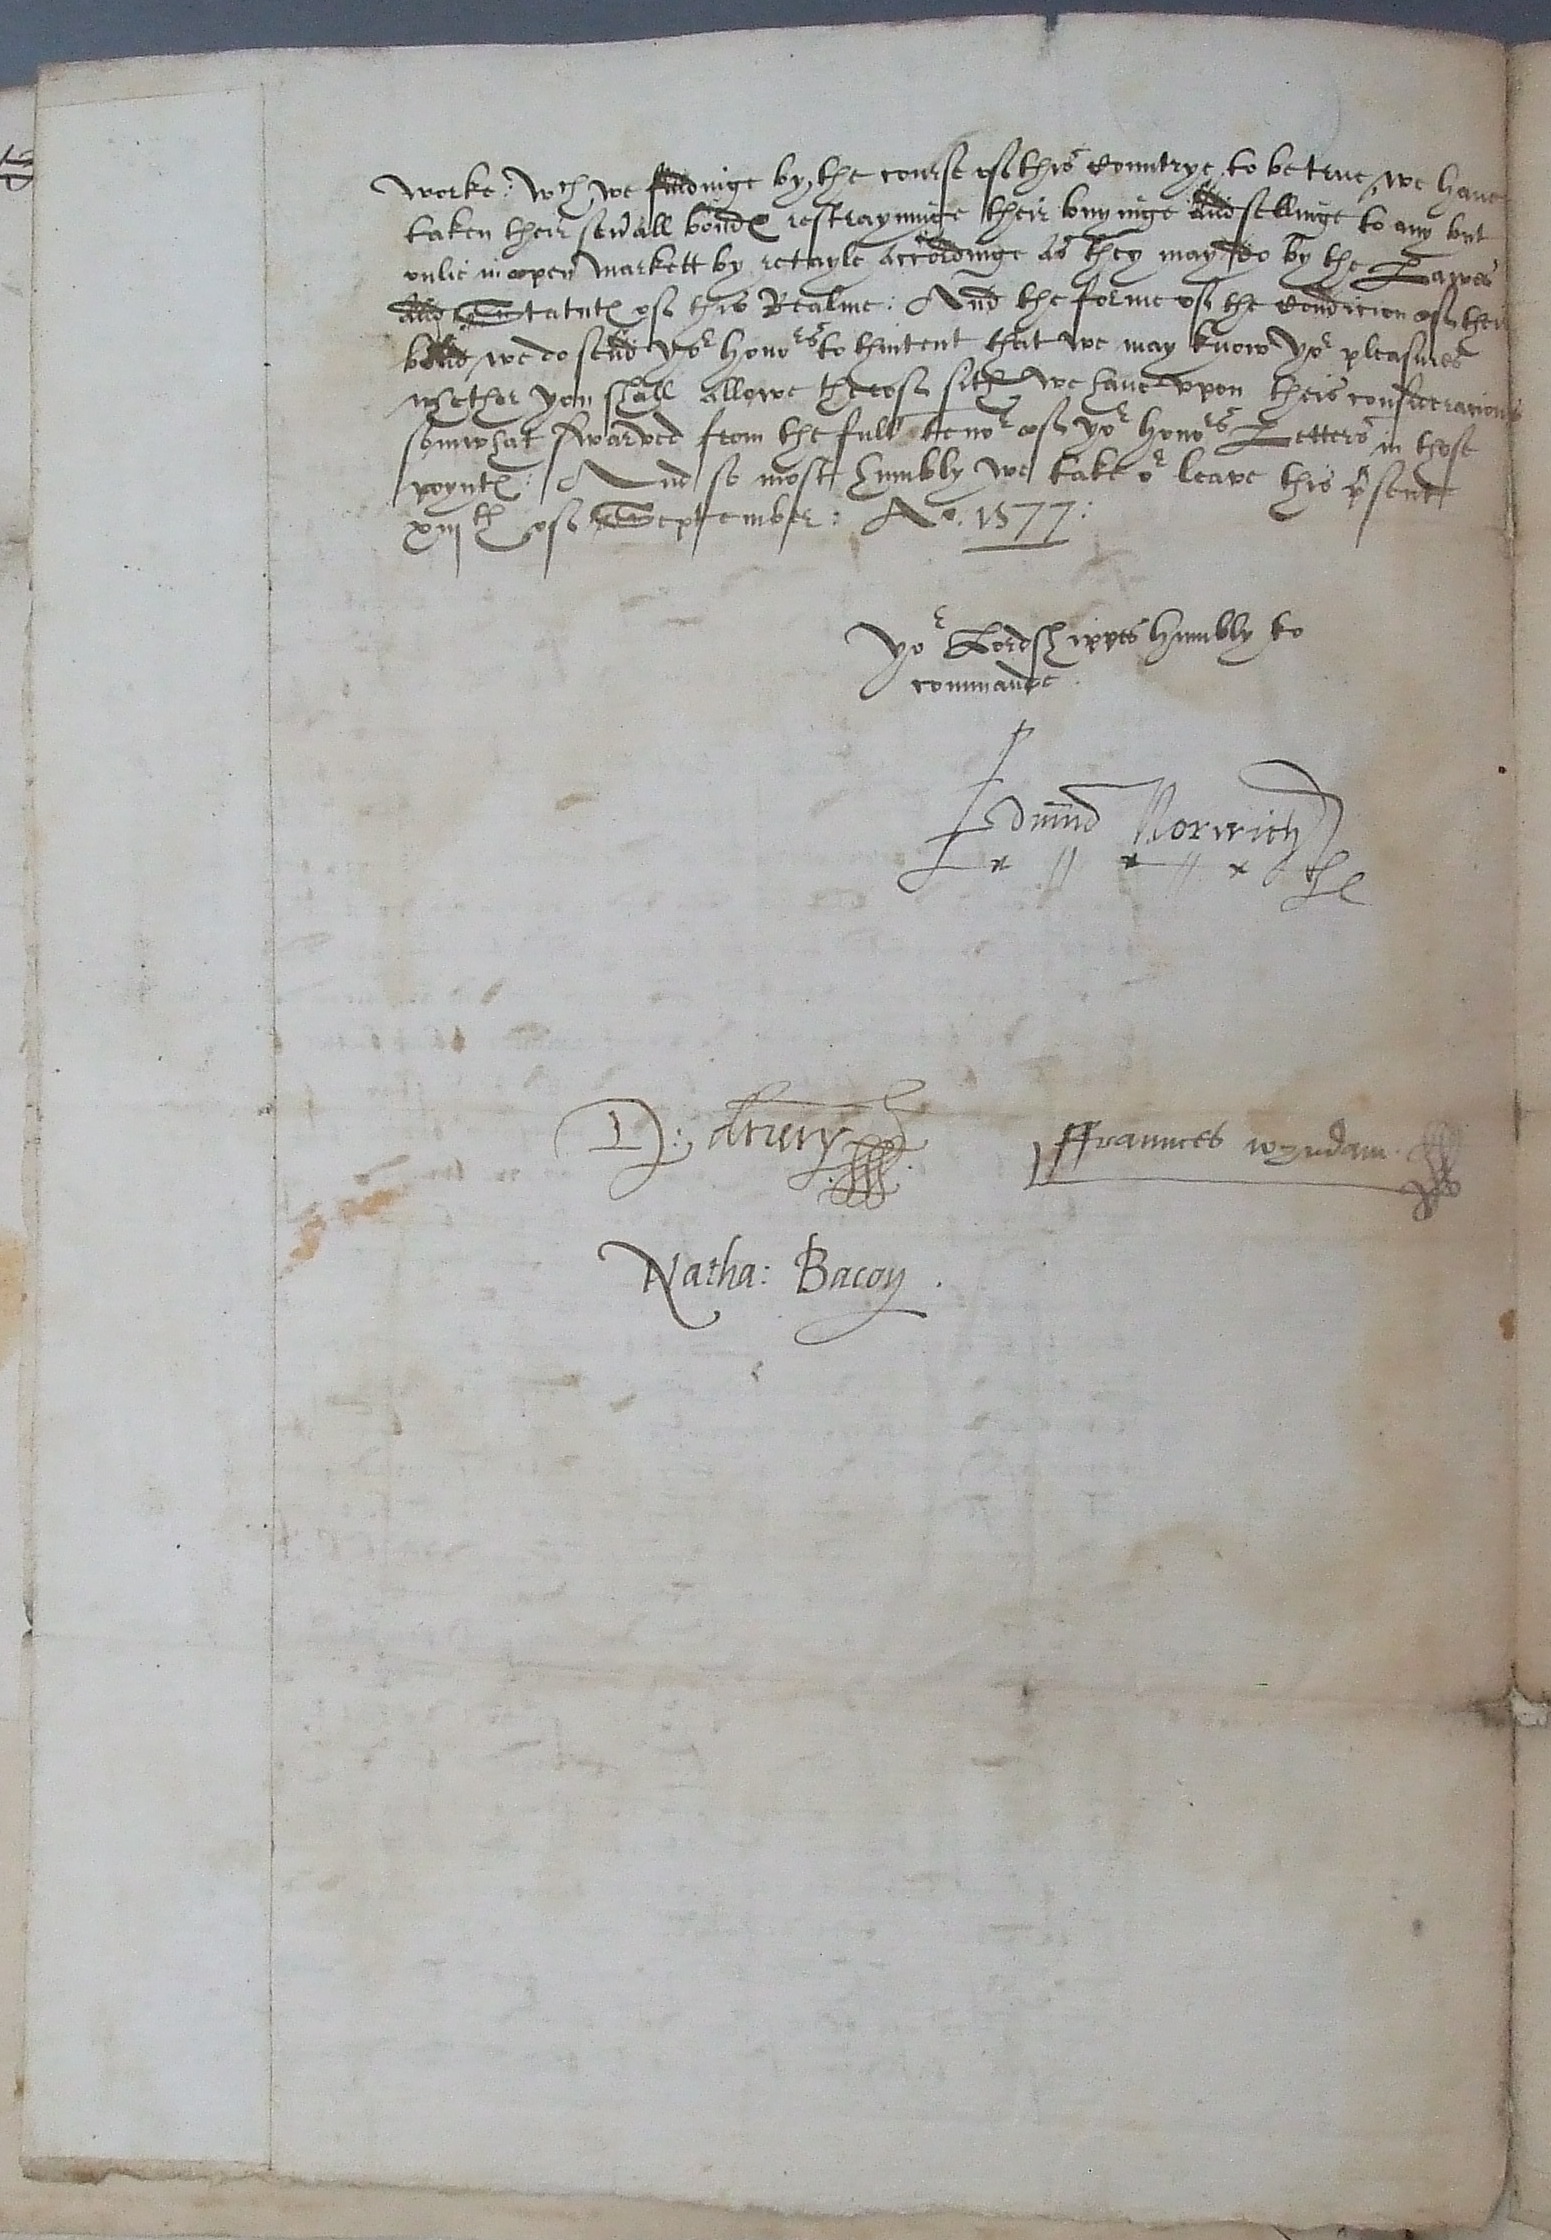 worke: Wch we findinge by the course of this Countrye to be true, we have
taken their sevall bondes restrayninge their buyinge and sellinge to any but
onlie in open Markett by retayle accordinge as they may do by the Lawes
and Statutes of this Realme: And the forme of the Condicion of their
bond, we do send yor honors to thintent that we may know yor pleasures
whether you shall allowe therof sith we have upon theis consideracions
somwhat swarved from the full tenor of yor honors Letters in those
poyntes: And so most humbly we take or leave this psent
xiijth of September: Ao. 1577:
yor Lordshippes humbly to
commande.
Edmund Norwich
D: drury
ffraunces wyndam.
Natha: Bacon.